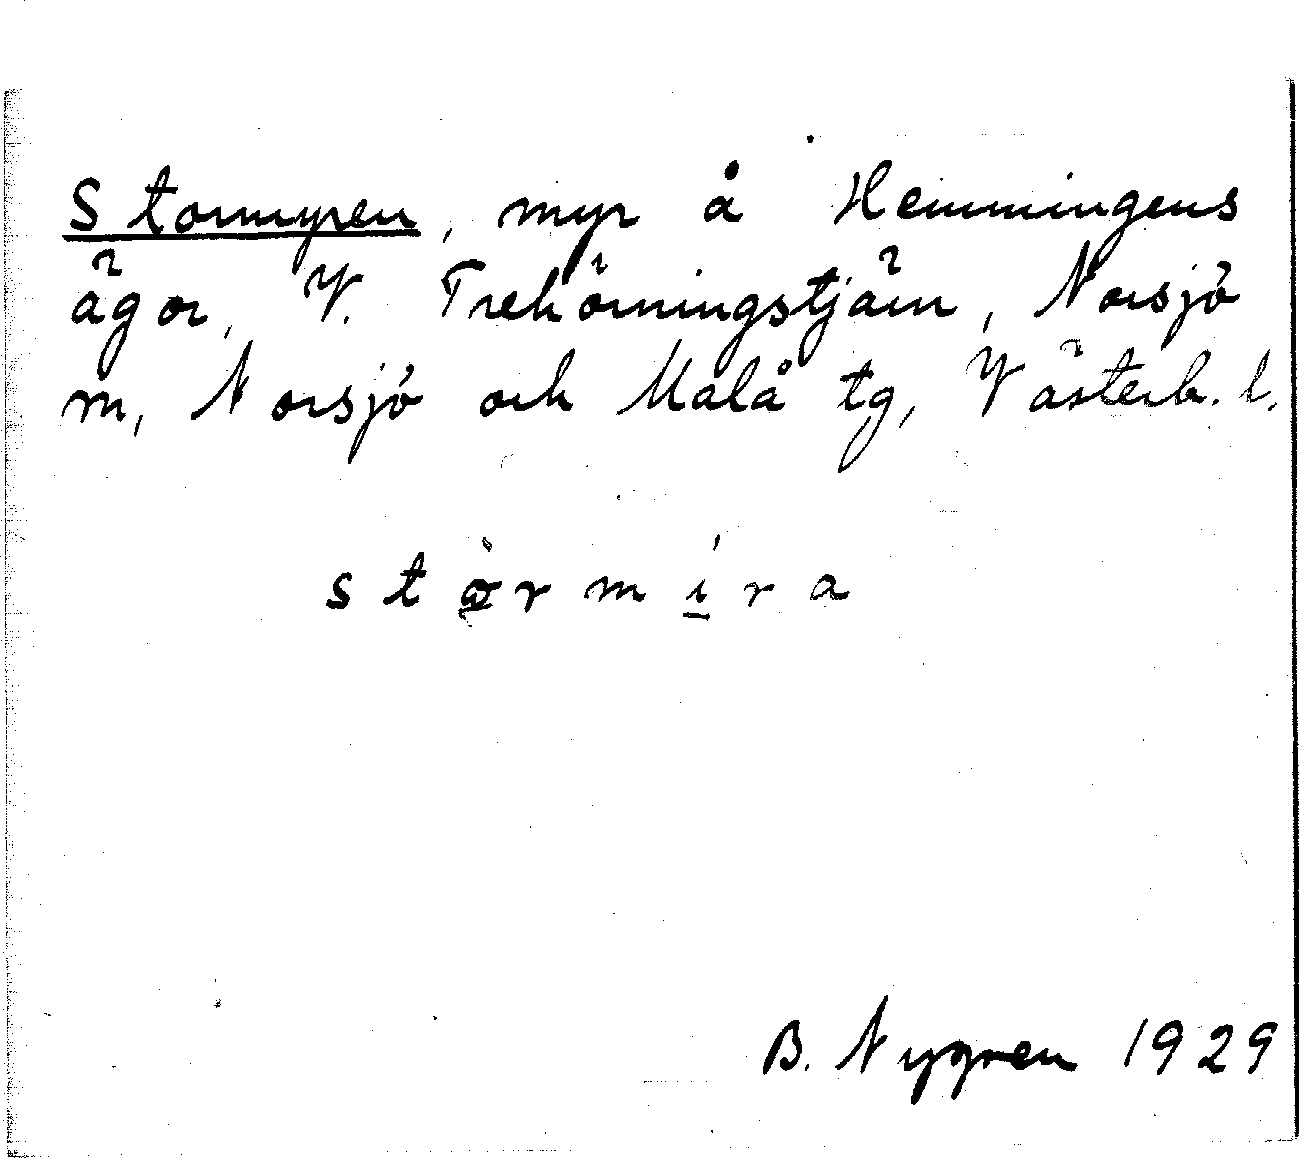 Stormyren, myr å Hemmingens
ägor, V. Trehörningstjärn, Norsjö
sn, Norsjö och Malå tg, Västerb. l.
B. Nygren 1929